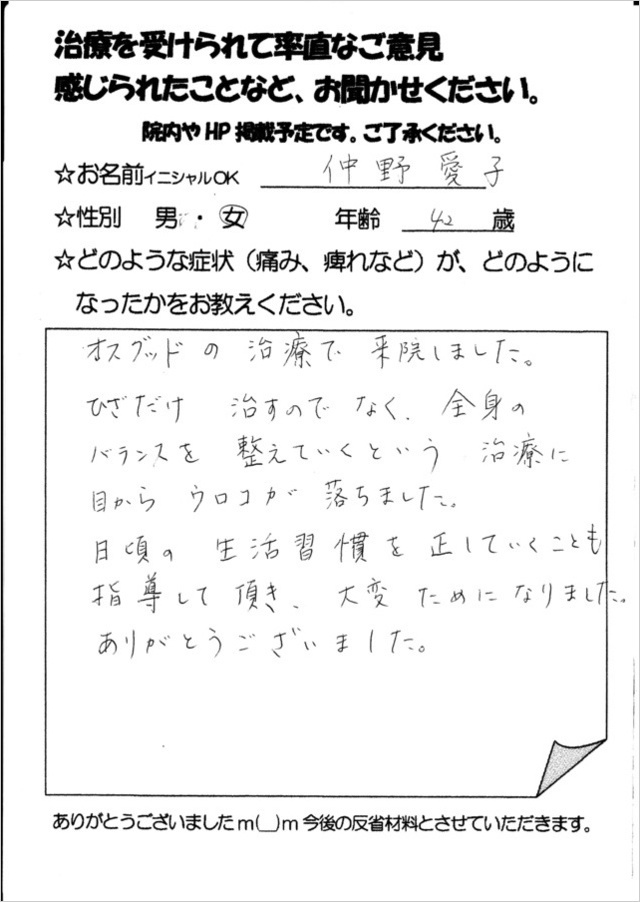 治療を受けられて率直なご意見
感じられたことなど、お聞かせください。
院内やHP掲載予定です。ご了承ください。
☆お名前イニシャルOK 仲野愛子
☆性別 男・女 年齢 42 歳
☆どのような症状(痛み、痺れなど)が、どのように
なったかをお教えください。
オスグッドの治療で来院しました。
ひざだけ治すのでなく、全身の
バランスを整えていくという治療に
目からウロコが落ちました。
日頃の生活習慣を正していくことも
指導して頂き、大変ためになりました。
ありがとうございました。
ありがとうございましたm(__)m今後の反省材料とさせていただきます。